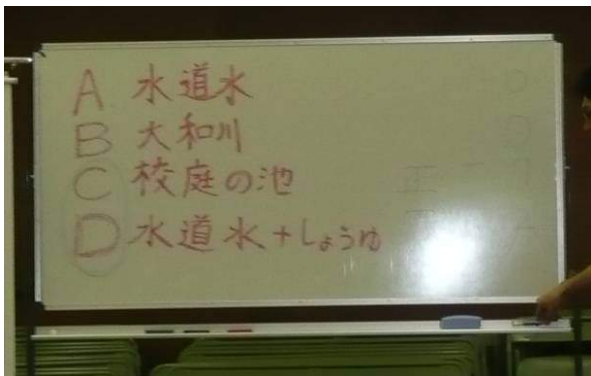 A 水道水
B 大和川
C 校庭の池
D 水道水+しょうゆ